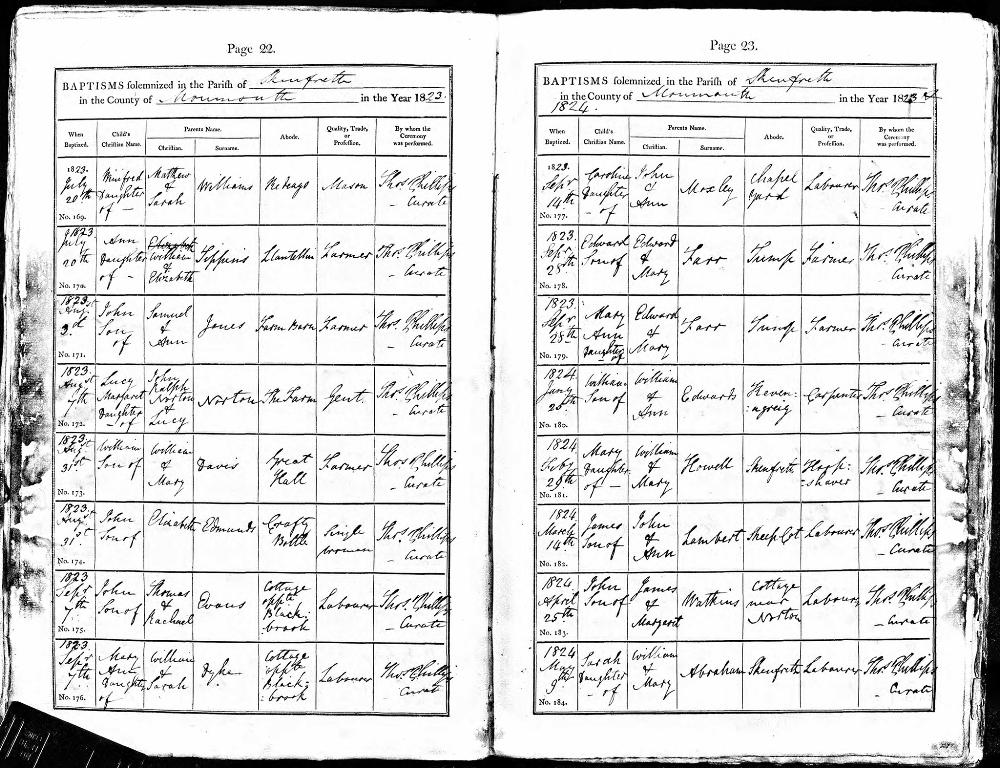 Page 22.
BAPTISMS solemnized in the Parish of Skenfreth
in the County of Monmouth in the Year 1823.
When Baptized. Child's Christian Name. Parents Name. Christian. Surname. Abode. Quality, Trade, or Profession. By whom the Ceremony was performed.
1823.
July 20th
No. 169.
Winifred Daughter of
Mathew & Sarah
Williams
Mason
Thos. Phillips
Curate
1823
July 20th
No. 170.
Ann Daughter of
Elizabeth
William & Elizabeth
Llantellin
Farmer
Thos. Phillips
Curate
1823.
Augt 3d
No. 171.
John Son of
Samuel & Ann
Jones
Farm Barn
Farmer
Thos. Phillips
Curate
1823.
Augst 7th
No. 172.
Lucy Margaret Daughter of
John Ralph Norton & Lucy
Norton
The Farm
Gent.
Thos. Phillips
Curate
1823.
Augst 31st
No. 173.
William Son of
William & Mary
Davis
Great Hall
Farmer
Thos. Phillips
Curate
1823.
Augst 31st
No. 174.
John Son of
Elizabeth
Edmunds
Crafty
Single Woman
Thos. Phillips
Curate
1823
Sepr 7th
No. 175.
John Son of
Thomas & Rachael
Evans
Cottage oppte Black-brook
Labourer
Thos. Phillips
Curate
1823.
Sepr 7th
No. 176.
Mary Ann Daughter of
William & Sarah
Dyke
Cottage oppte Black-brook
Labourer
Thos. Phillips
Curate
Page 23.
BAPTISMS solemnized in the Parish of Skenfreth
in the County of Monmouth in the Year 1823 &
1824.
When Baptized. Child's Christian Name. Parents Name. Christian. Surname. Abode. Quality, Trade, or Profession. By whom the Ceremony was performed.
1823.
Sepr 14th
No. 177.
Caroline Daughter of
John & Ann
Mozley
Chapel Yard
Labourer
Thos. Phillips
Curate
1823.
Sepr 28th
No. 178.
Edward Son of
Edward & Mary
Farr
Tump
Farmer
Thos. Phillips
Curate
1823.
Sepr 28th
No. 179.
Mary Ann Daughter of
Edward & Mary
Farr
Tump
Farmer
Thos. Phillips
Curate
1824.
Jany 25th
No. 180.
William Son of
William & Ann
Edwards
Carpenter
Thos. Phillips
Curate
1824
Feby 29th
No. 181.
Mary Daughter of
William & Mary
Howell
Skenfreth
Hoop-shaver
Thos. Phillips
Curate
1824
March 14th
No. 182.
James Son of
John & Ann
Lambert
Sheep Cot
Labourer
Thos. Phillips
Curate
1824
April 25th
No. 183.
John Son of
James & Margaret
Watkins
Cottage near Norton
Labourer
Thos. Phillips
Curate
1824
May 9th
No. 184.
Sarah Daughter of
William & Mary
Abraham
Skenfreth
Labourer
Thos. Phillips
Curate